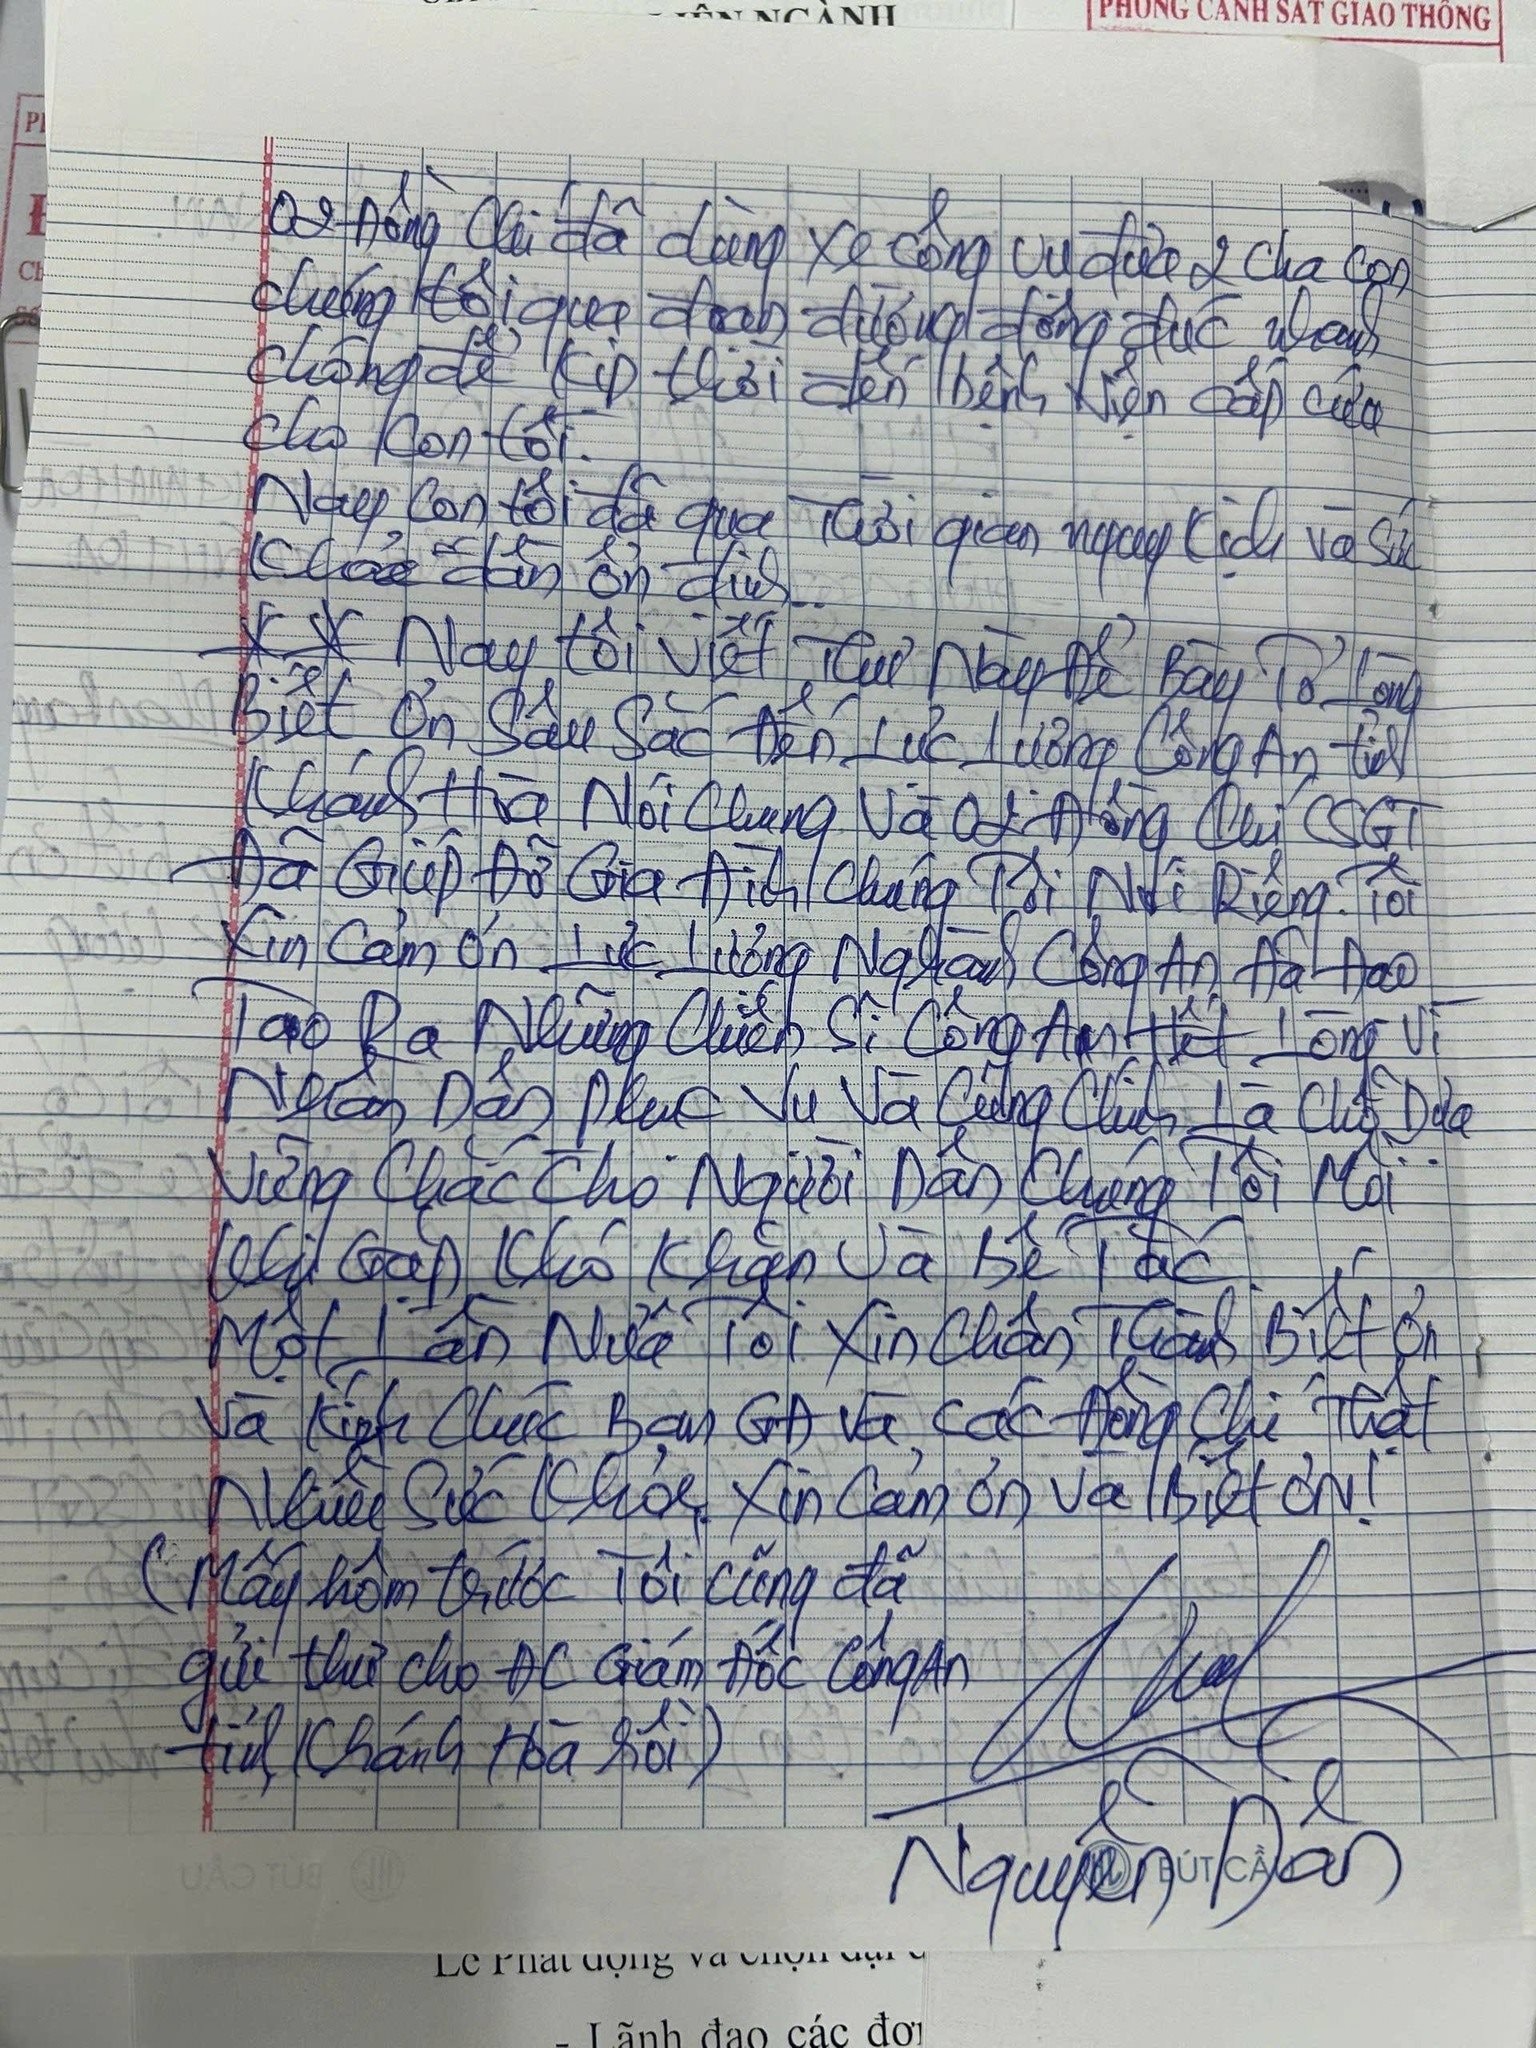 PHÒNG CẢNH SÁT GIAO THÔNG
NGÀNH
02 Đồng Chí đã dùng xe công vụ đưa 2 cha con
chúng tôi qua đoạn đường đông đúc nhanh
chóng để kịp thời đến bệnh viện cấp cứu
cho con tôi.
Nay con tôi đã qua thời gian nguy kịch và sức
khỏe dần ổn định...
XX Nay tôi viết Thư Này Để Bày Tỏ Lòng
Biết Ơn Sâu Sắc Đến Lực Lượng Công An tỉnh
Khánh Hòa Nói Chung Và 02 Đồng Chí CSGT
Đã Giúp Đỡ Gia Đình Chúng Tôi Nói Riêng. Tôi
Xin Cảm Ơn Lực Lượng Nghành Công An Đã Đào
Tạo Ra Những Chiến Sĩ Công An Hết Lòng Vì
Nhân Dân Phục Vụ Và Cũng Chính Là Chỗ Dựa
Vững Chắc Cho Người Dân Chúng Tôi Mỗi
Khi Gặp Khó Khăn Và Bế Tắc.
Một Lần Nữa Tôi Xin Chân Thành Biết Ơn
Và Kính Chúc Ban GĐ Và Các Đồng Chí Thật
Nhiều Sức Khỏe. Xin Cảm Ơn Và Biết ƠN!
(Mấy hôm trước Tôi cũng đã
gửi thư cho ĐC Giám Đốc Công An
tỉnh Khánh Hòa rồi)
Nguyễn Dần
BÚT CẦ
Lễ Phát động và chọn đại
- Lãnh đạo các đơn